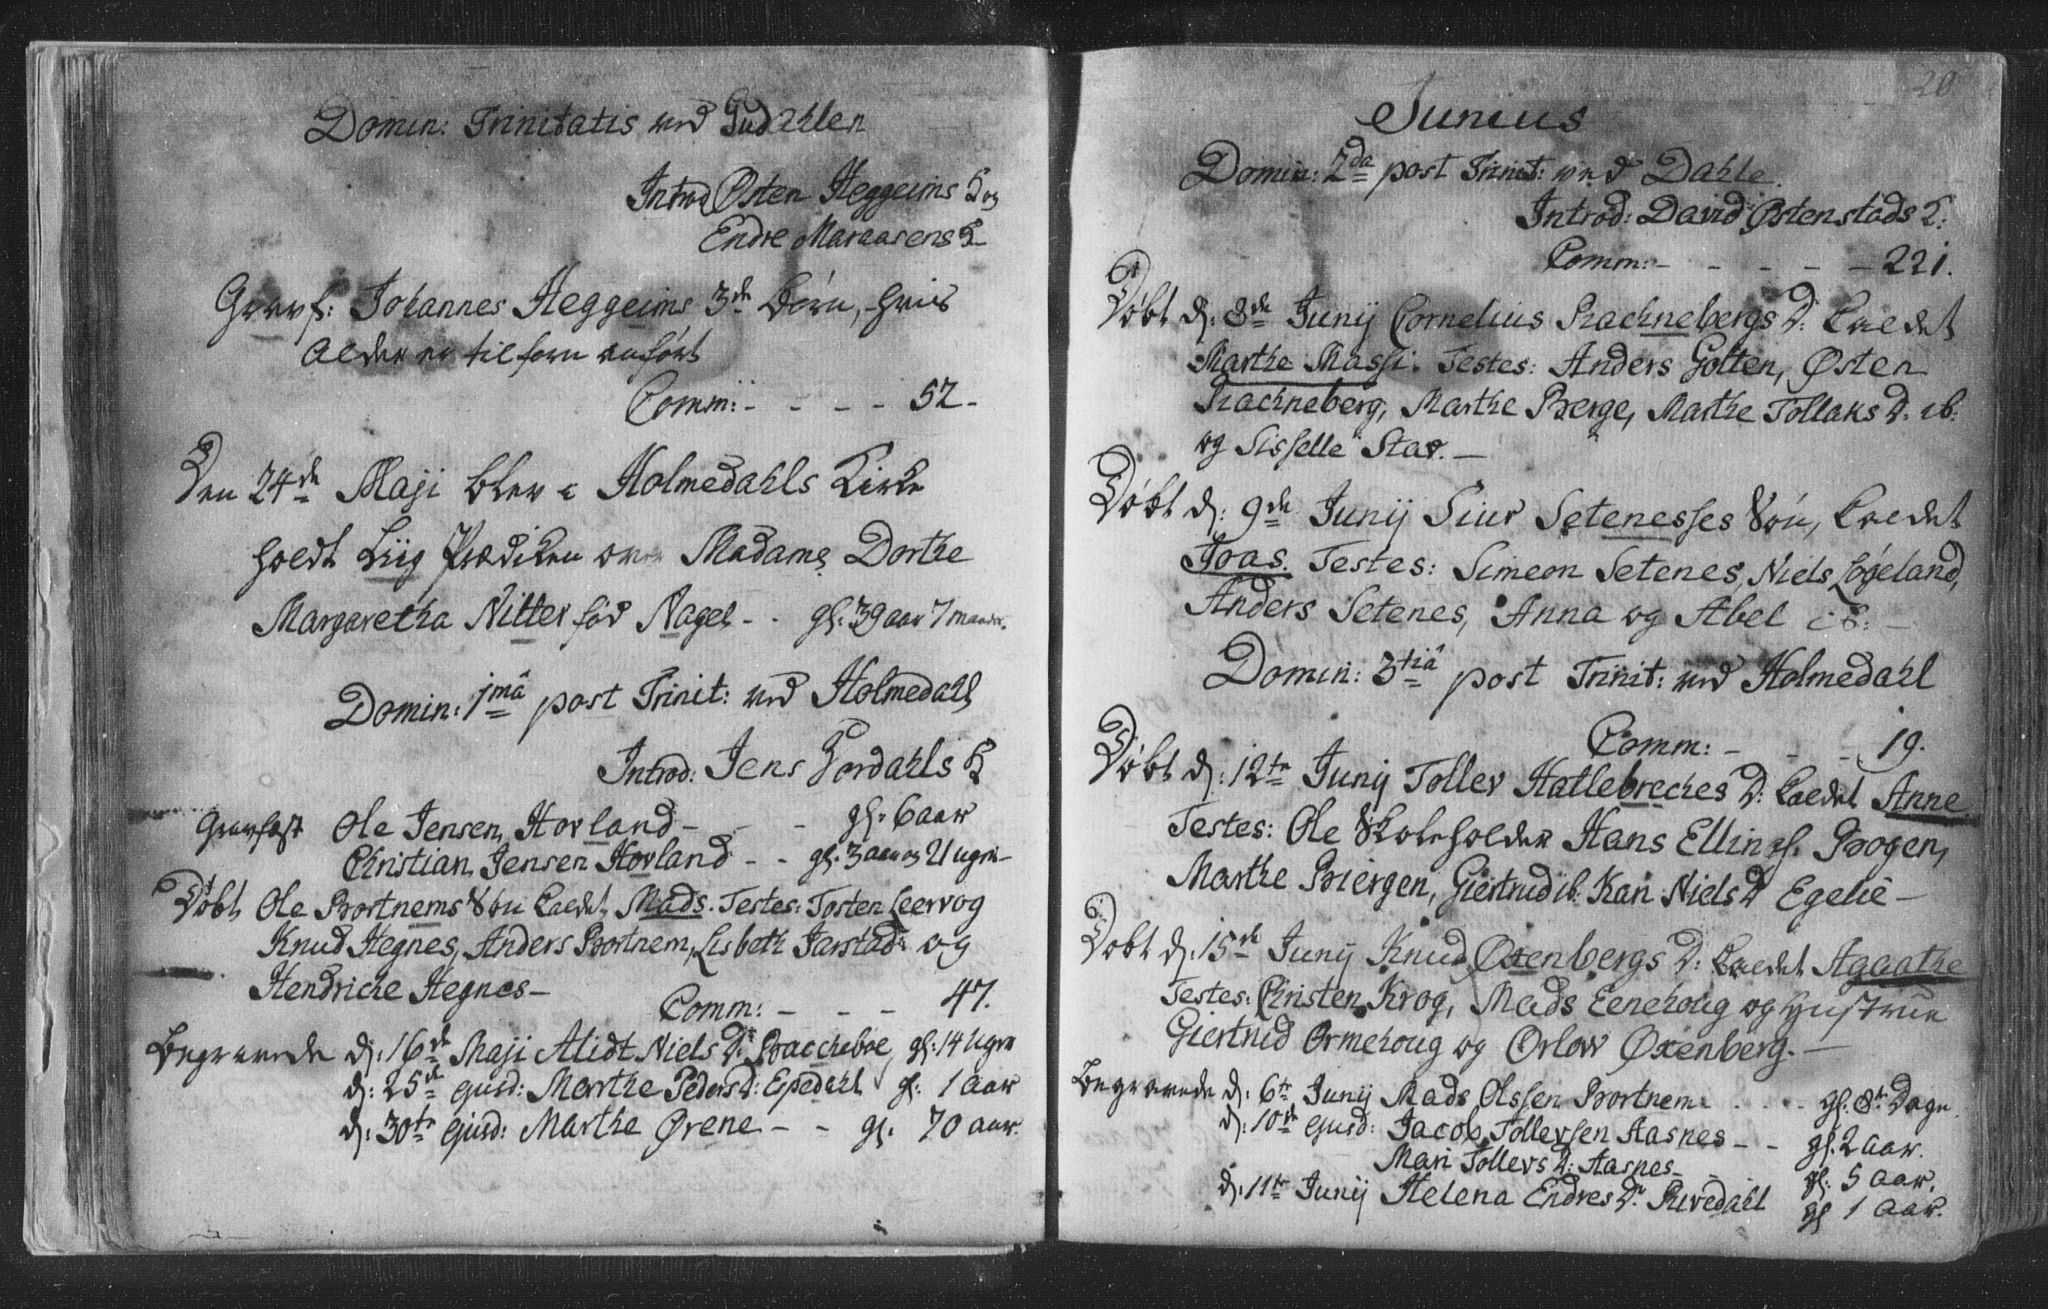 Domin: Trinitatis ved Gudahlen
Introd Østen Heggeims K og
Endre Maraasens K
Gravf: Johannes Heggeims 3de Børn, hvis
Alder er tilforn anført
Comm: - - - - 52 -
Den 24de Maji blev i Holmedahls Kirke
holdt Liig Prædiken over Madame Dorthe
Margaretha Nitter fød Nagel - - gl: 39 aar 7 maaner.
Domin: 1mâ post Trinit: ved Holmedahl
Introd: Jens Hordahls K
Gravfæst Ole Jensen Hovland - - - gl: 6 aar
Christian Jensen Hovland - - gl: 3 aar og 21 uger -
Døbt Ole Bortnems Søn kaldet Mads. Testes: Tosten Leervog
Knud Hegnes, Anders Bortnem, Lisbeth Jarstad og
Hendriche Hegnes -
Comm: - - - 47.
Begravede d: 16de Maji Alidt Niels D: Baccheboe, gl: 14 Uger
d: 25de ejusd: Marthe Peders D: Espedahl gl: 1 Aar
d: 30te ejusd: Marthe Ørene - - gl: 70 aar.
20
Junius
Domin: 2da post Trinit: ved Dahle.
Introd: David Østenstads K:
Comm: - - - - - 221.
Døbt d: 8de Junij Cornelius Rachnebergs D: kaldet
Marthe Massi. Testes: Anders Golten, Østen
Rachneberg, Marthe Berge, Marthe Tollaks D. ib:
og Sisselle Stav. -
Døbt d: 9de Junij Siur Setenesses Søn, kaldet
Joas. Testes: Simeon Setenes, Niels Løgeland,
Anders Setenes, Anna og Abel ib: -
Domin: 3tiâ post Trinit: ved Holmedahl
Comm: - - - 19.
Døbt d: 12te Junij Tollev Hatlebreches D: kaldet Anne
Testes: Ole Skoleholder Hans Ellings. Bogen,
Marthe Biergen, Giertrud ib. Kari Niels D Egelie -
Døbt d: 15de Junij Knud Oxenbergs D: kaldet Agaathe
Testes: Christen Krog, Mads Eenehoug og Hustrue
Giertrud Ormehoug og Orlow Oxenberg. -
Begravede d: 6te Junij Mads Olssen Bortnem - - - - gl: 8te Dage.
d: 10de ejusd: Jacob Tollevsen Aasnes - - gl: 2 aar.
Mari Tollevs D: Aasnes - - gl: 5 aar.
d: 11te Junij Helena Endres Dr. Rivedahl gl 1 Aar.